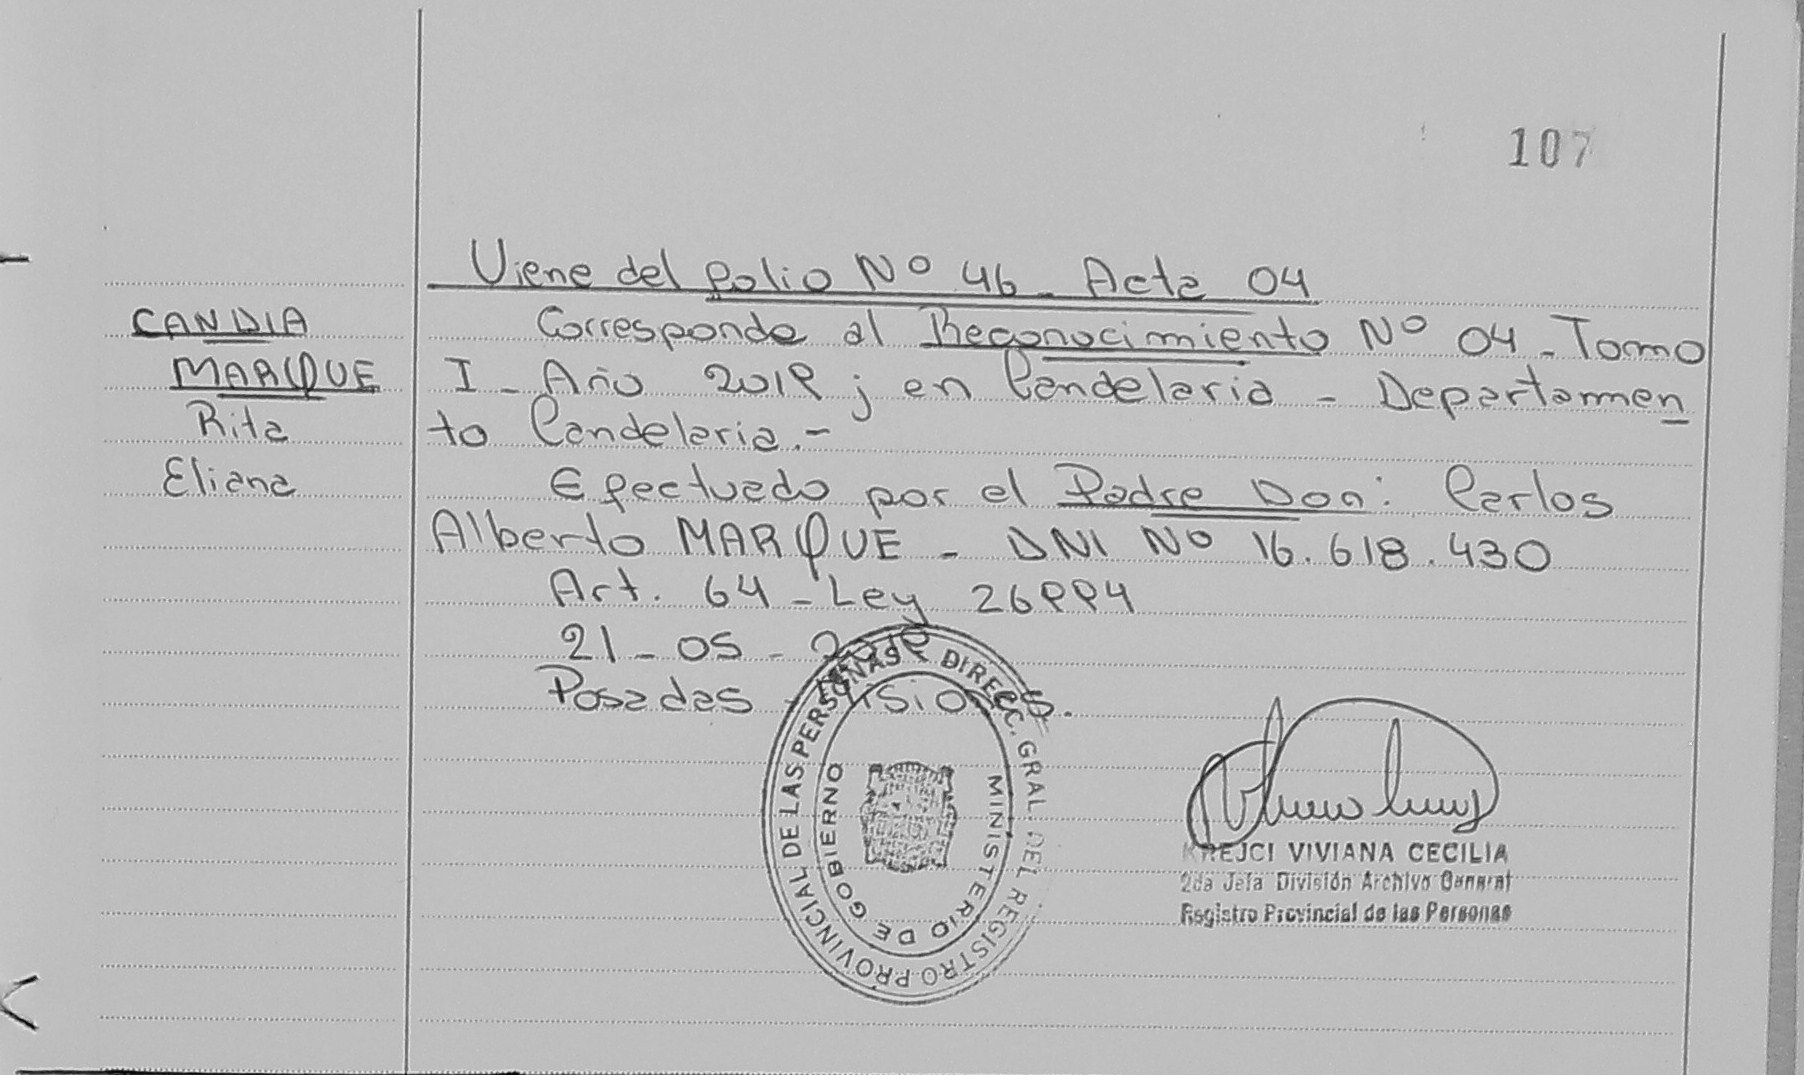 107
Viene del folio Nº 46 - Acta 04
CANDIA
MARQUE
Rita
Eliana
Corresponde al Reconocimiento Nº 04 - Tomo
I - Año 2019; en Candelaria - Departamen
to Candelaria.-
Efectuado por el Padre Don: Carlos
Alberto MARQUE - DNI Nº 16.618.430
Art. 64 - Ley 26994
21 - 05 - 2019
Posadas - Misiones.
DIRECC. GRAL. DEL REGISTRO PROVINCIAL DE LAS PERSONAS
MINISTERIO DE GOBIERNO
KREJCI VIVIANA CECILIA
2da Jefa División Archivo General
Registro Provincial de las Personas